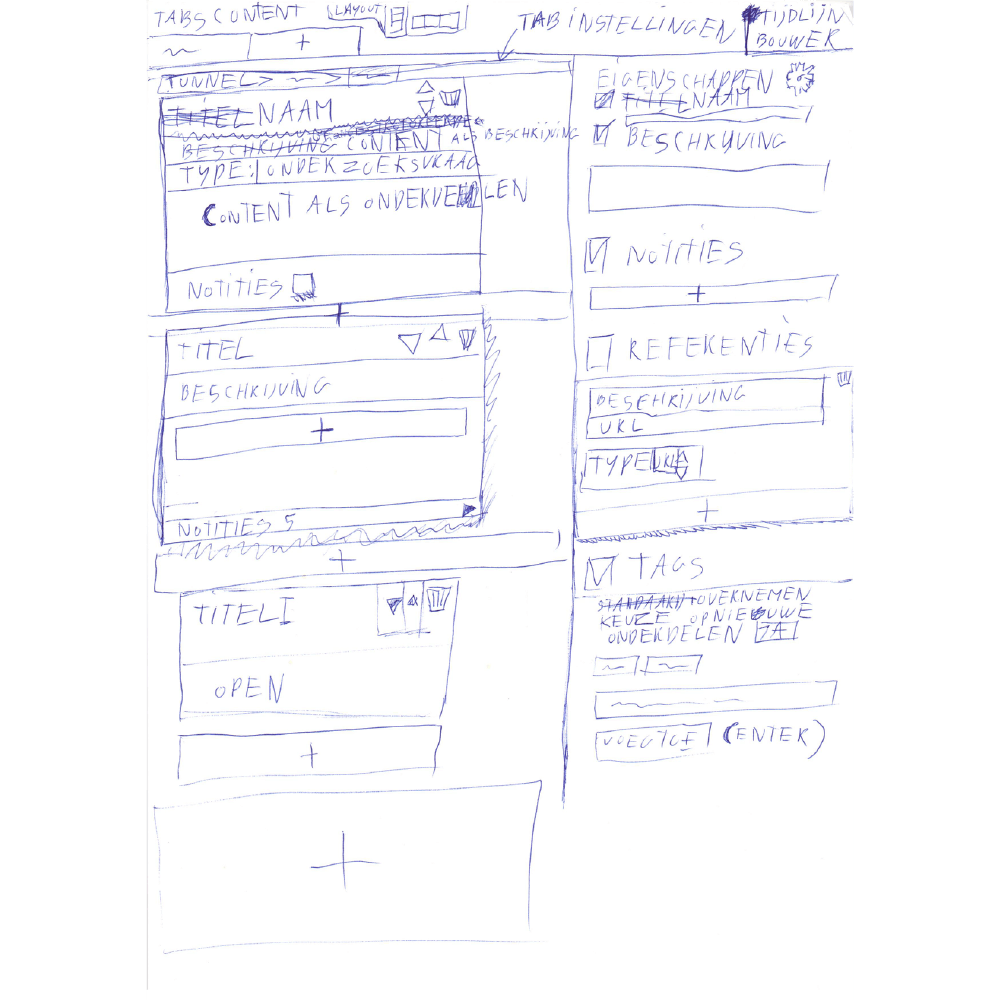 TABS CONTENT
LAYOUT
TAB INSTELLINGEN
TIJDLIJN
BOUWER
+
TUNNEL>
TITEL NAAM
BESCHRIJVING CONTENT ALS BESCHRIJVING
TYPE: ONDERZOEKSVRAAG
CONTENT ALS ONDERDELEN
NOTITIES
+
TITEL
BESCHRIJVING
+
NOTITIES 5
+
TITEL I
OPEN
+
+
EIGENSCHAPPEN
TITEL NAAM
BESCHRIJVING
NOTITIES
+
REFERENTIES
BESCHRIJVING
URL
TYPE URL
+
TAGS
STANDAARD OVERNEMEN
KEUZE OP NIEUWE
ONDERDELEN JA
VOEG TOE (ENTER)